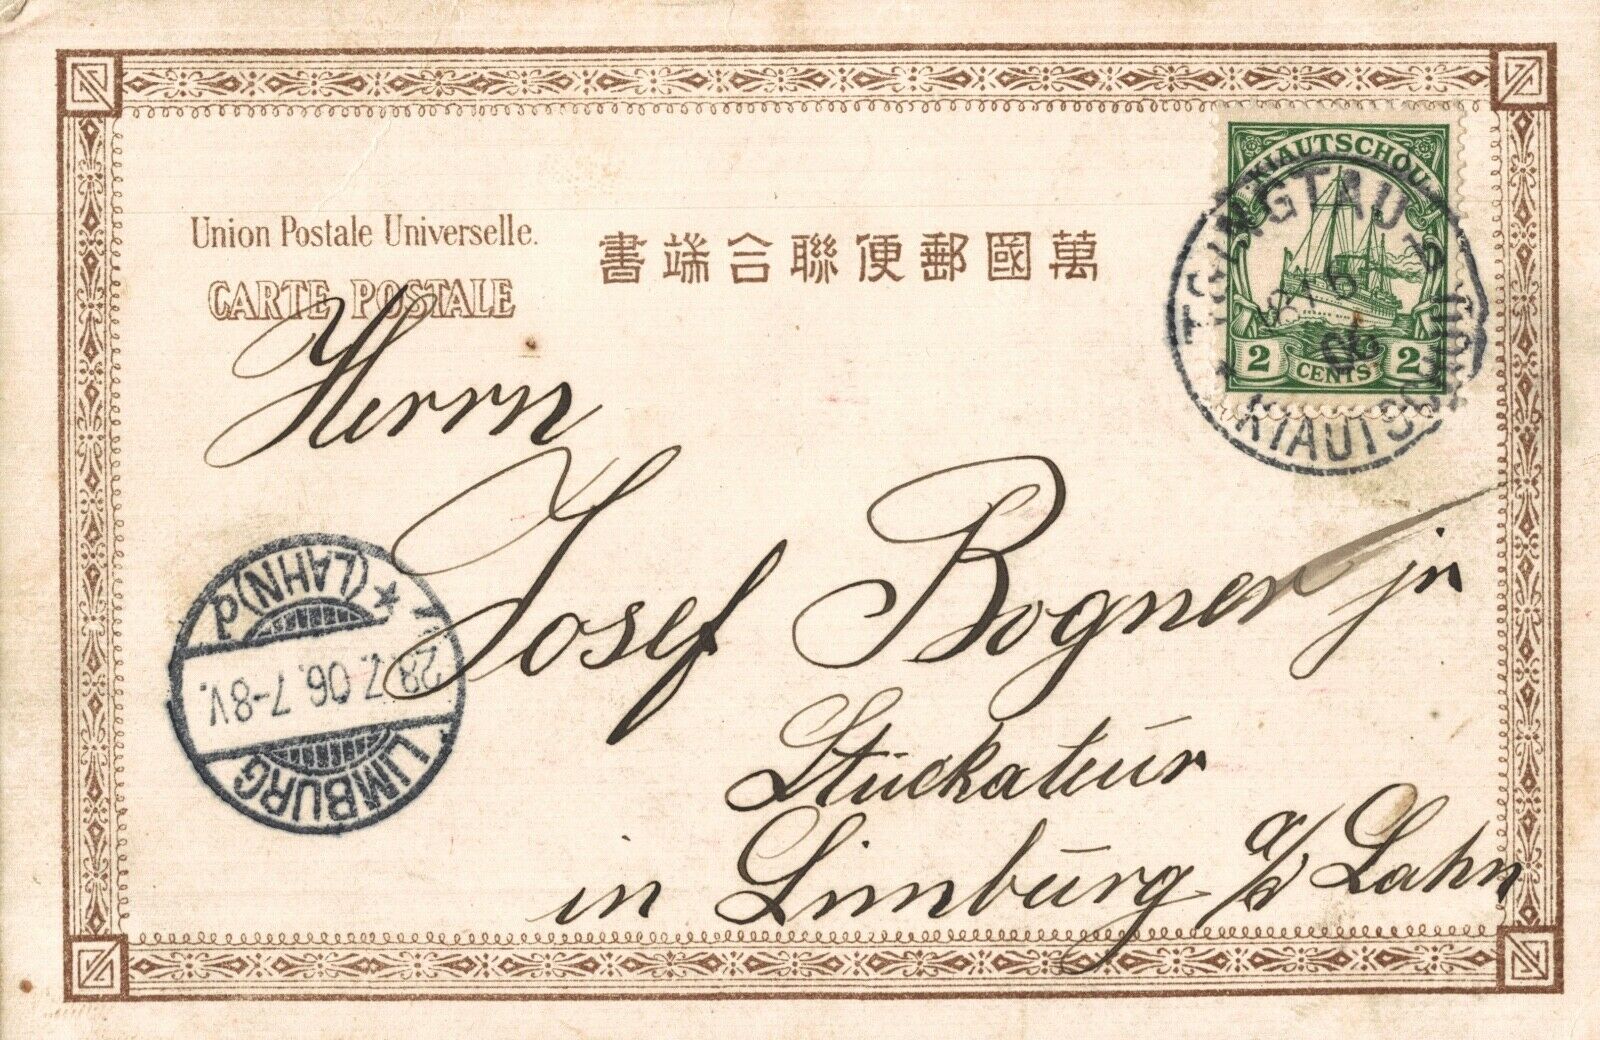 Union Postale Universelle.
CARTE POSTALE
書端合聯便郵國萬
KIAUTSCHOU
2 CENTS 2
TSINGTAU
KIAUTSCHOU
Herrn
Josef Bogner jr
Stuckateur
in Limburg a/d Lahn
LIMBURG
28.7.06.7-8V.
(LAHN)d